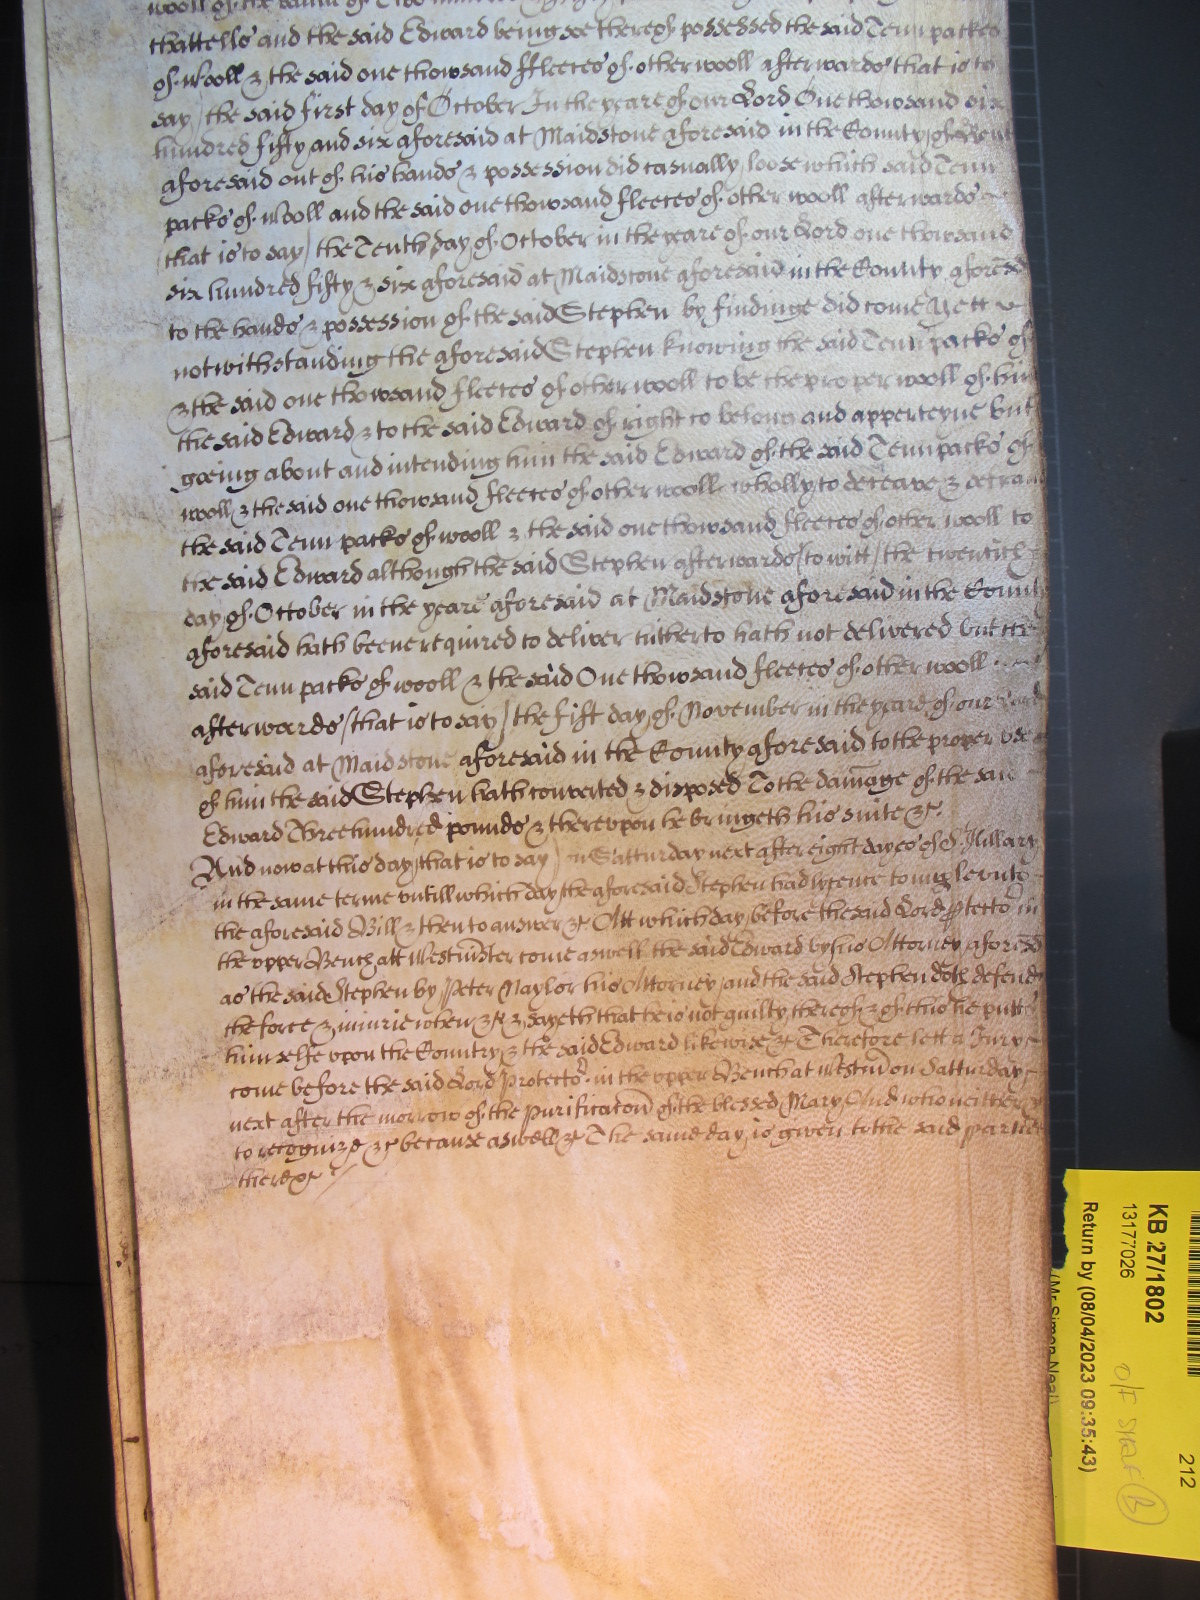 wooll of the value of Two hundred
Chattells and the said Edward being soe thereof possessed the said Tenn packes
of wooll & the said one thowsand ffleeces of other wooll afterwards that is to
say / the said first day of October In the yeare of our Lord One thowsand six
hundred fifty and six aforesaid at Maidstone aforesaid in the County of Kent
aforesaid out of his hands & possession did casually loose which said Tenn
packs of wooll and the said one thowsand fleeces of other wooll afterwards
that is to say / the Tenth day of October in the yeare of our Lord one thowsand
six hundred fifty & six aforesaid at Maidstone aforesaid in the County aforesd
to the hands & possession of the said Stephen by findinge did come Yett
notwithstanding the aforesaid Stephen knowing the said Tenn packs of
& the said one thowsand fleeces of other wooll to be the proper wooll of him
the said Edward & to the said Edward of right to belong and apperteyne but
goeing about and intending him the said Edward of the said Tenn packs of
wooll & the said one thowsand fleeces of other wooll wholly to deceave &
the said Tenn packs of wooll & the said one thowsand fleeces of other wooll to
the said Edward although the said Stephen afterwards / to witt / the twentieth
day of October in the yeare aforesaid at Maidstone aforesaid in the County
aforesaid hath beene required to deliver hitherto hath not delivered but the
said Tenn packs of wooll & the said One thowsand fleeces of other wooll
afterwards / that is to say / the fift day of November in the yeare of our Lord
aforesaid at Maidstone aforesaid in the County aforesaid to the proper use
of him the said Stephen hath converted & disposed To the damage of the said
Edward Three hundred pounds & thereupon he bringeth his suite &c.
And now at this day / that is to say / on Satturday next after eight dayes of St. Hillary
in the same terme untill which day the aforesaid Stephen had lycence to imp
the aforesaid Bill & then to answer &c Att which day before the said Lord Protector in
the upper Bench att Westminster come aswell the said Edward by his Attorney aforesd
as the said Stephen by Peter Naylor his Attorney / and the said Stephen doth defend
the force & injurie when &c & sayeth that he is not guilty thereof & of this he putts
himselfe upon the Country & the said Edward likewise &c Therefore lett a Jury
come before the said Lord Protector in the upper Bench at Westm on Satturday
next after the morrow of the purificaton of the blessed Mary And who neither
to recognize &c because aswell &c The same day is given to the said parties
there &c
KB 27/1802
13177026
Return by (08/04/2023 09:35:43)
(Mr Simon Neal)
212